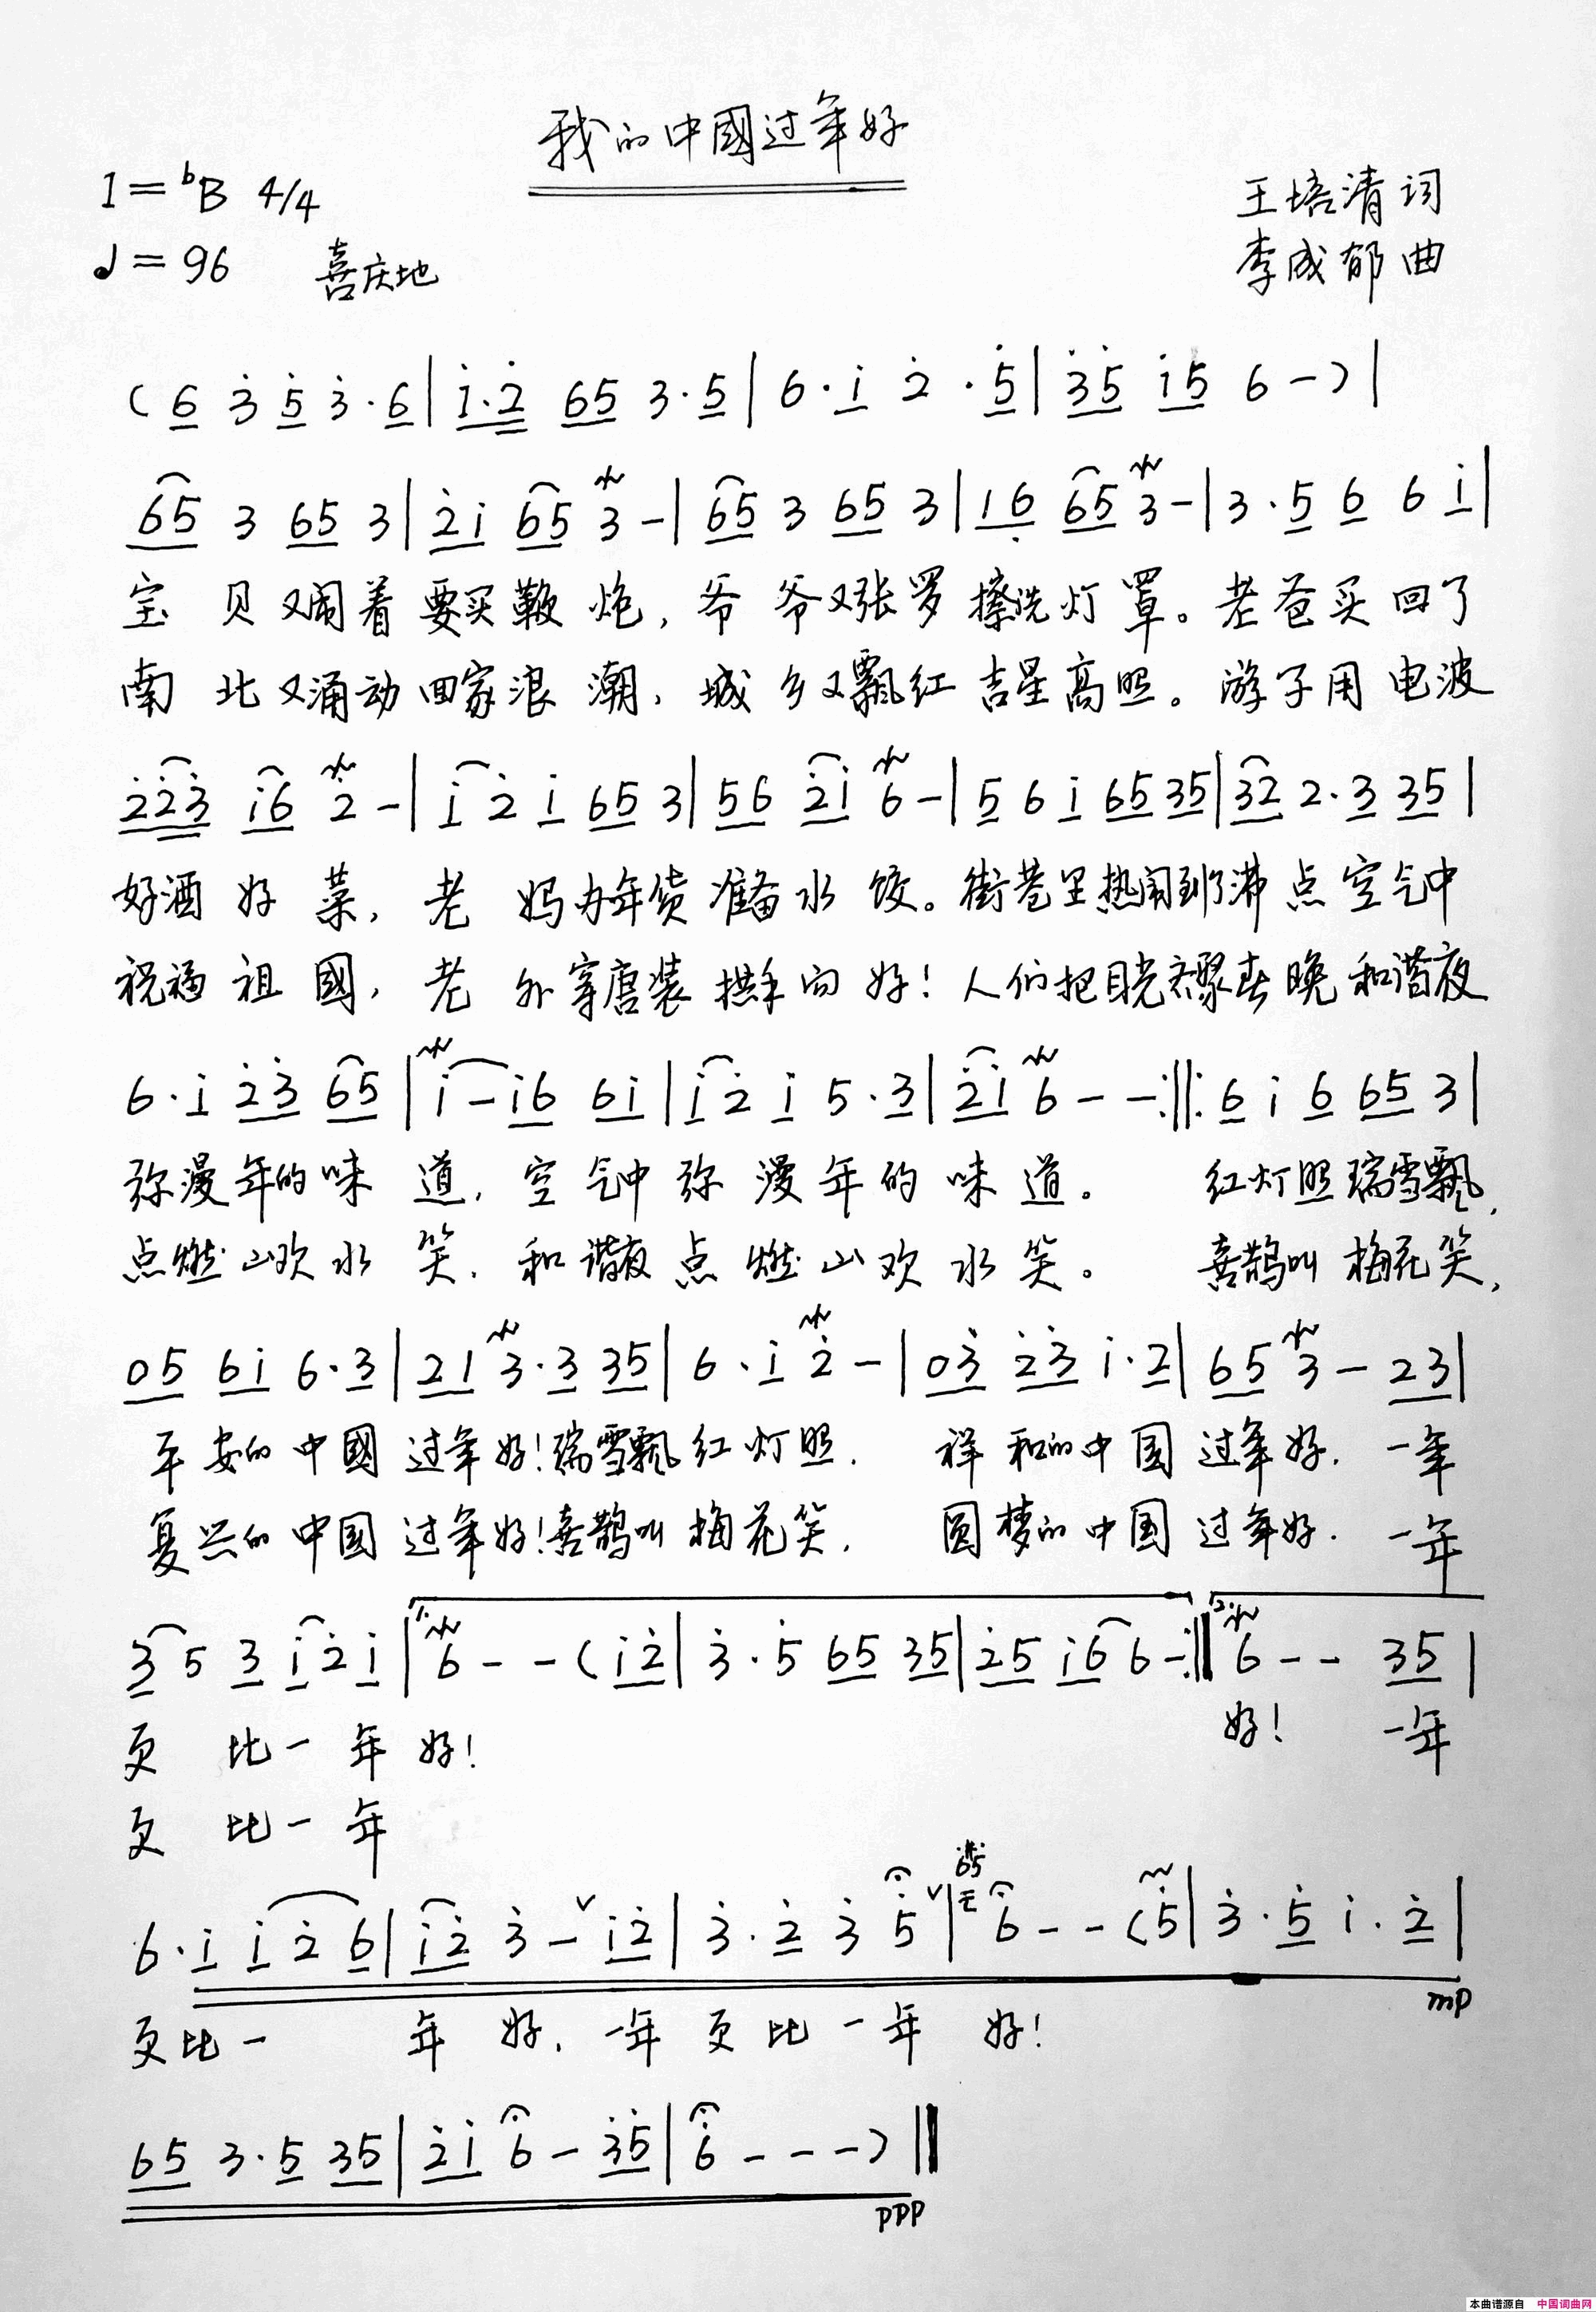 我的中國过年好
1=ᵇB 4/4
王培清 词
♩=96 喜庆地
李成郁 曲
(6 3̇ 5̇ 3̇·6|1̇·2̇ 65 3·5|6·1̇ 2̇·5̇|3̇5̇ 1̇5̇ 6-)|
65 3 65 3|2̇1̇ 65 3-|65 3 65 3|16̣ 65 3-|3·5 6 6 1̇|
宝贝又闹着要买鞭炮,爷爷又张罗擦洗灯罩。老爸买回了
南北又涌动回家浪潮,城乡又飘红吉星高照。游子用电波
2̇2̇3̇ 1̇6 2̇-|1̇ 2̇ 1̇ 65 3|56 2̇1̇ 6-|5 6 1̇ 65 35|32 2·3 35|
好酒好菜,老妈办年货准备水饺。街巷里热闹到了沸点空气中
祝福祖國,老外穿唐装拱手问好!人们把目光聚春晚和谐夜
6·1̇ 2̇3̇ 65|1̇-1̇6 61̇|1̇ 2̇ 1̇ 5·3|2̇1̇ 6--:||:6 1̇ 6 65 3|
弥漫年的味道,空气中弥漫年的味道。红灯照瑞雪飘,
点燃山欢水笑,和谐夜点燃山欢水笑。喜鹊叫梅花笑,
05 61̇ 6·3|21 3·3 35|6·1̇ 2̇-|03̇ 2̇3̇ 1̇·2|65 3-23|
平安的中國过年好!瑞雪飘红灯照.祥和的中国过年好.一年
复兴的中国过年好!喜鹊叫梅花笑.圆梦的中国过年好.一年
3 5 3 1̇ 2̇ 1̇|1. 6--(1̇2̇|3̇·5̇ 65 35|2̇5 1̇6 6-:||2. 6--35|
更比一年好!好!一年
更比一年
65
6·1̇ 1̇ 2̇ 6|1̇2̇ 3̇-1̇2̇|3̇·2̇ 3̇ 5̇|6--(5̇|3̇·5̇ 1̇·2̇|
mp
更比一年好.一年更比一年好!
65 3·5 35|2̇1̇ 6-3̇5̇|6---)||
ppp
本曲谱源自 中国词曲网